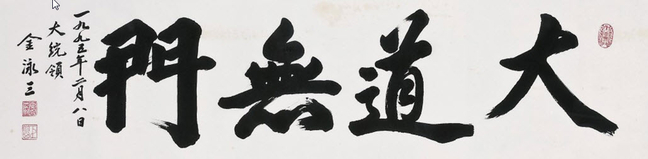 大道無門
一九九五年二月八日
大統領
金泳三